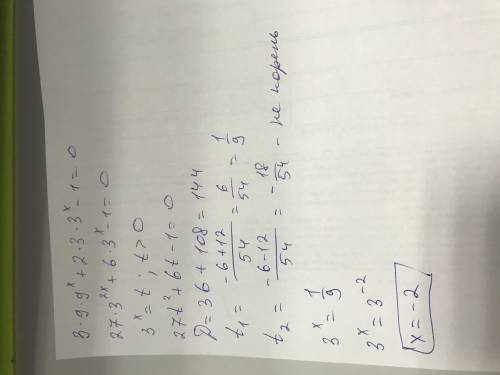 3·9·9^x + 2·3·3^x - 1 = 0
27·3^{2x} + 6·3^x - 1 = 0
3^x = t, t > 0
27t² + 6t - 1 = 0
D = 36 + 108 = 144
t₁ = (-6+12)/54 = 6/54 = 1/9
t₂ = (-6-12)/54 = -18/54 - не корень
3^x = 1/9
3^x = 3^{-2}
x = -2